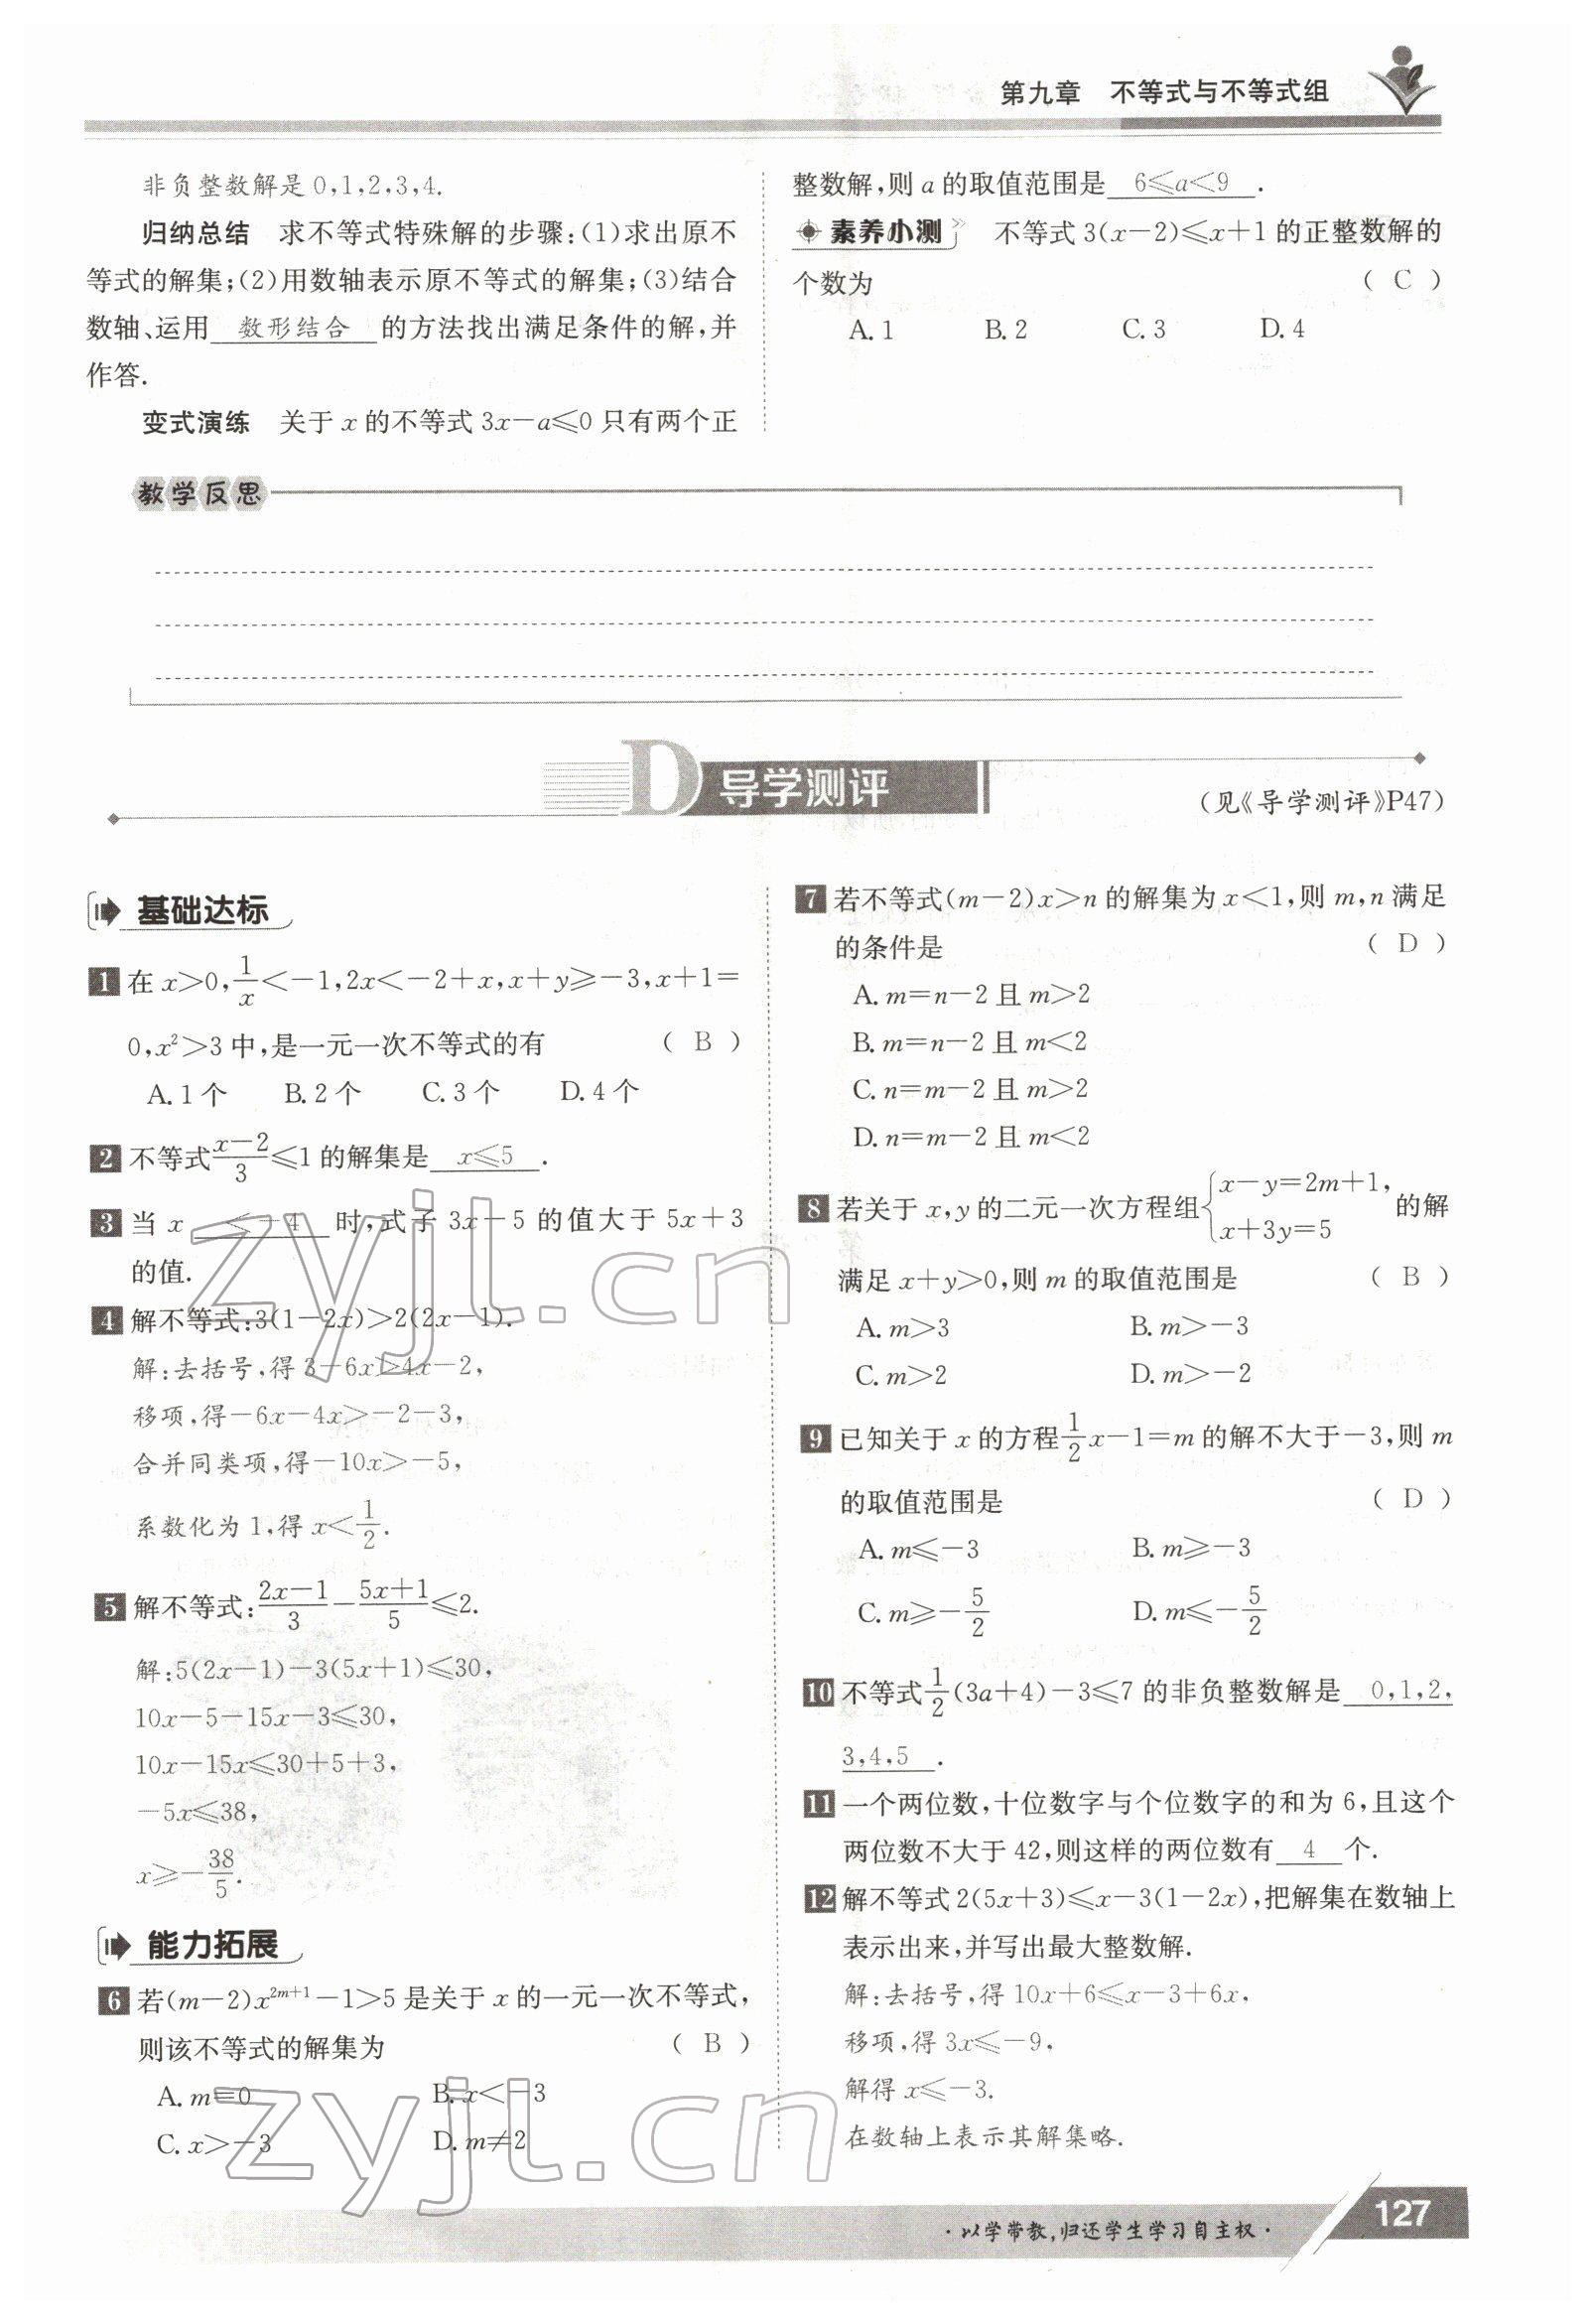 第九章 不等式与不等式组
非负整数解是 0,1,2,3,4.
归纳总结 求不等式特殊解的步骤:(1)求出原不
等式的解集;(2)用数轴表示原不等式的解集;(3)结合
数轴、运用 数形结合 的方法找出满足条件的解,并
作答.
变式演练 关于 x 的不等式 3x-a≤0 只有两个正
整数解,则 a 的取值范围是 6≤a<9 .
素养小测 不等式 3(x-2)≤x+1 的正整数解的
个数为 ( C )
A. 1 B. 2 C. 3 D. 4
教学反思
D 导学测评
(见《导学测评》P47)
基础达标
1 在 x>0, 1/x <-1,2x<-2+x,x+y≥-3,x+1=
0,x²>3 中,是一元一次不等式的有 ( B )
A. 1 个 B. 2 个 C. 3 个 D. 4 个
2 不等式 (x-2)/3 ≤1 的解集是 x≤5 .
3 当 x <-4 时,式子 3x-5 的值大于 5x+3
的值.
4 解不等式:3(1-2x)>2(2x-1).
解:去括号,得 3-6x>4x-2,
移项,得-6x-4x>-2-3,
合并同类项,得-10x>-5,
系数化为 1,得 x< 1/2 .
5 解不等式: (2x-1)/3 - (5x+1)/5 ≤2.
解:5(2x-1)-3(5x+1)≤30,
10x-5-15x-3≤30,
10x-15x≤30+5+3,
-5x≤38,
x≥- 38/5 .
能力拓展
6 若(m-2)x²ᵐ⁺¹-1>5 是关于 x 的一元一次不等式,
则该不等式的解集为 ( B )
A. m=0 B. x<-3
C. x>-3 D. m≠2
7 若不等式(m-2)x>n 的解集为 x<1,则 m,n 满足
的条件是 ( D )
A. m=n-2 且 m>2
B. m=n-2 且 m<2
C. n=m-2 且 m>2
D. n=m-2 且 m<2
8 若关于 x,y 的二元一次方程组 { x-y=2m+1, x+3y=5 的解
满足 x+y>0,则 m 的取值范围是 ( B )
A. m>3 B. m>-3
C. m>2 D. m>-2
9 已知关于 x 的方程 1/2 x-1=m 的解不大于-3,则 m
的取值范围是 ( D )
A. m≤-3 B. m≥-3
C. m≥- 5/2 D. m≤- 5/2
10 不等式 1/2 (3a+4)-3≤7 的非负整数解是 0,1,2,
3,4,5 .
11 一个两位数,十位数字与个位数字的和为 6,且这个
两位数不大于 42,则这样的两位数有 4 个.
12 解不等式 2(5x+3)≤x-3(1-2x),把解集在数轴上
表示出来,并写出最大整数解.
解:去括号,得 10x+6≤x-3+6x,
移项,得 3x≤-9.
解得 x≤-3.
在数轴上表示其解集略.
·以学带教,归还学生学习自主权·
127
zyjl.cn
zyjl.cn